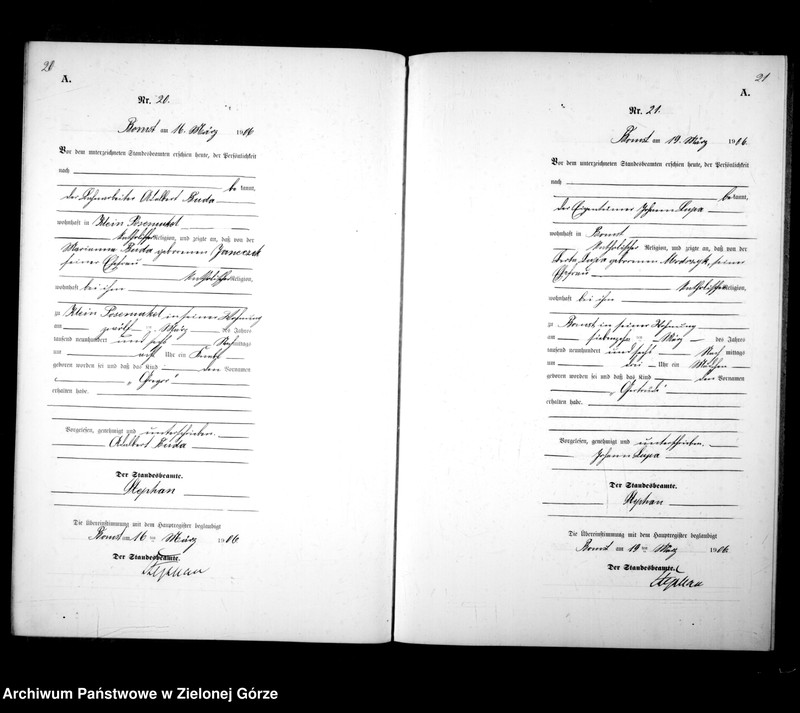 20
A.
Nr. 20.
Bomst am 16. März 1906
Vor dem unterzeichneten Standesbeamten erschien heute, der Persönlichkeit
nach
be kannt,
der Adalbert Buda
wohnhaft in Klein Posemukel
katholischer Religion, und zeigte an, daß von der
Marianna Buda geborenen Janeczek
seiner Ehefrau
katholischer Religion,
wohnhaft bei ihm
zu Klein Posemukel in seiner Wohnung
am zwölften März des Jahres
tausend neunhundert und sechs Nachmittags
um Uhr ein Knabe
geboren worden sei und daß das Kind den Vornamen
„Gregor“
erhalten habe.
Vorgelesen, genehmigt und unterschrieben.
Adalbert Buda
Der Standesbeamte.
Stephan
Die Übereinstimmung mit dem Hauptregister beglaubigt
Bomst am 16ten März 1906
Der Standesbeamte.
Stephan
21
A.
Nr. 21.
Bomst am 19. März 1906.
Vor dem unterzeichneten Standesbeamten erschien heute, der Persönlichkeit
nach
be kannt,
der Eigentümer Johann Lupa
wohnhaft in Bomst
katholischer Religion, und zeigte an, daß von der
Lupa geborenen seiner
Ehefrau
katholischer Religion,
wohnhaft bei ihm
zu Bomst in seiner Wohnung
am siebzehnten März des Jahres
tausend neunhundert und sechs Nachmittags
um drei Uhr ein Mädchen
geboren worden sei und daß das Kind den Vornamen
„Gertrude“
erhalten habe.
Vorgelesen, genehmigt und unterschrieben.
Johann Lupa
Der Standesbeamte.
Stephan
Die Übereinstimmung mit dem Hauptregister beglaubigt
Bomst am 19ten März 1906
Der Standesbeamte.
Stephan
Archiwum Państwowe w Zielonej Górze